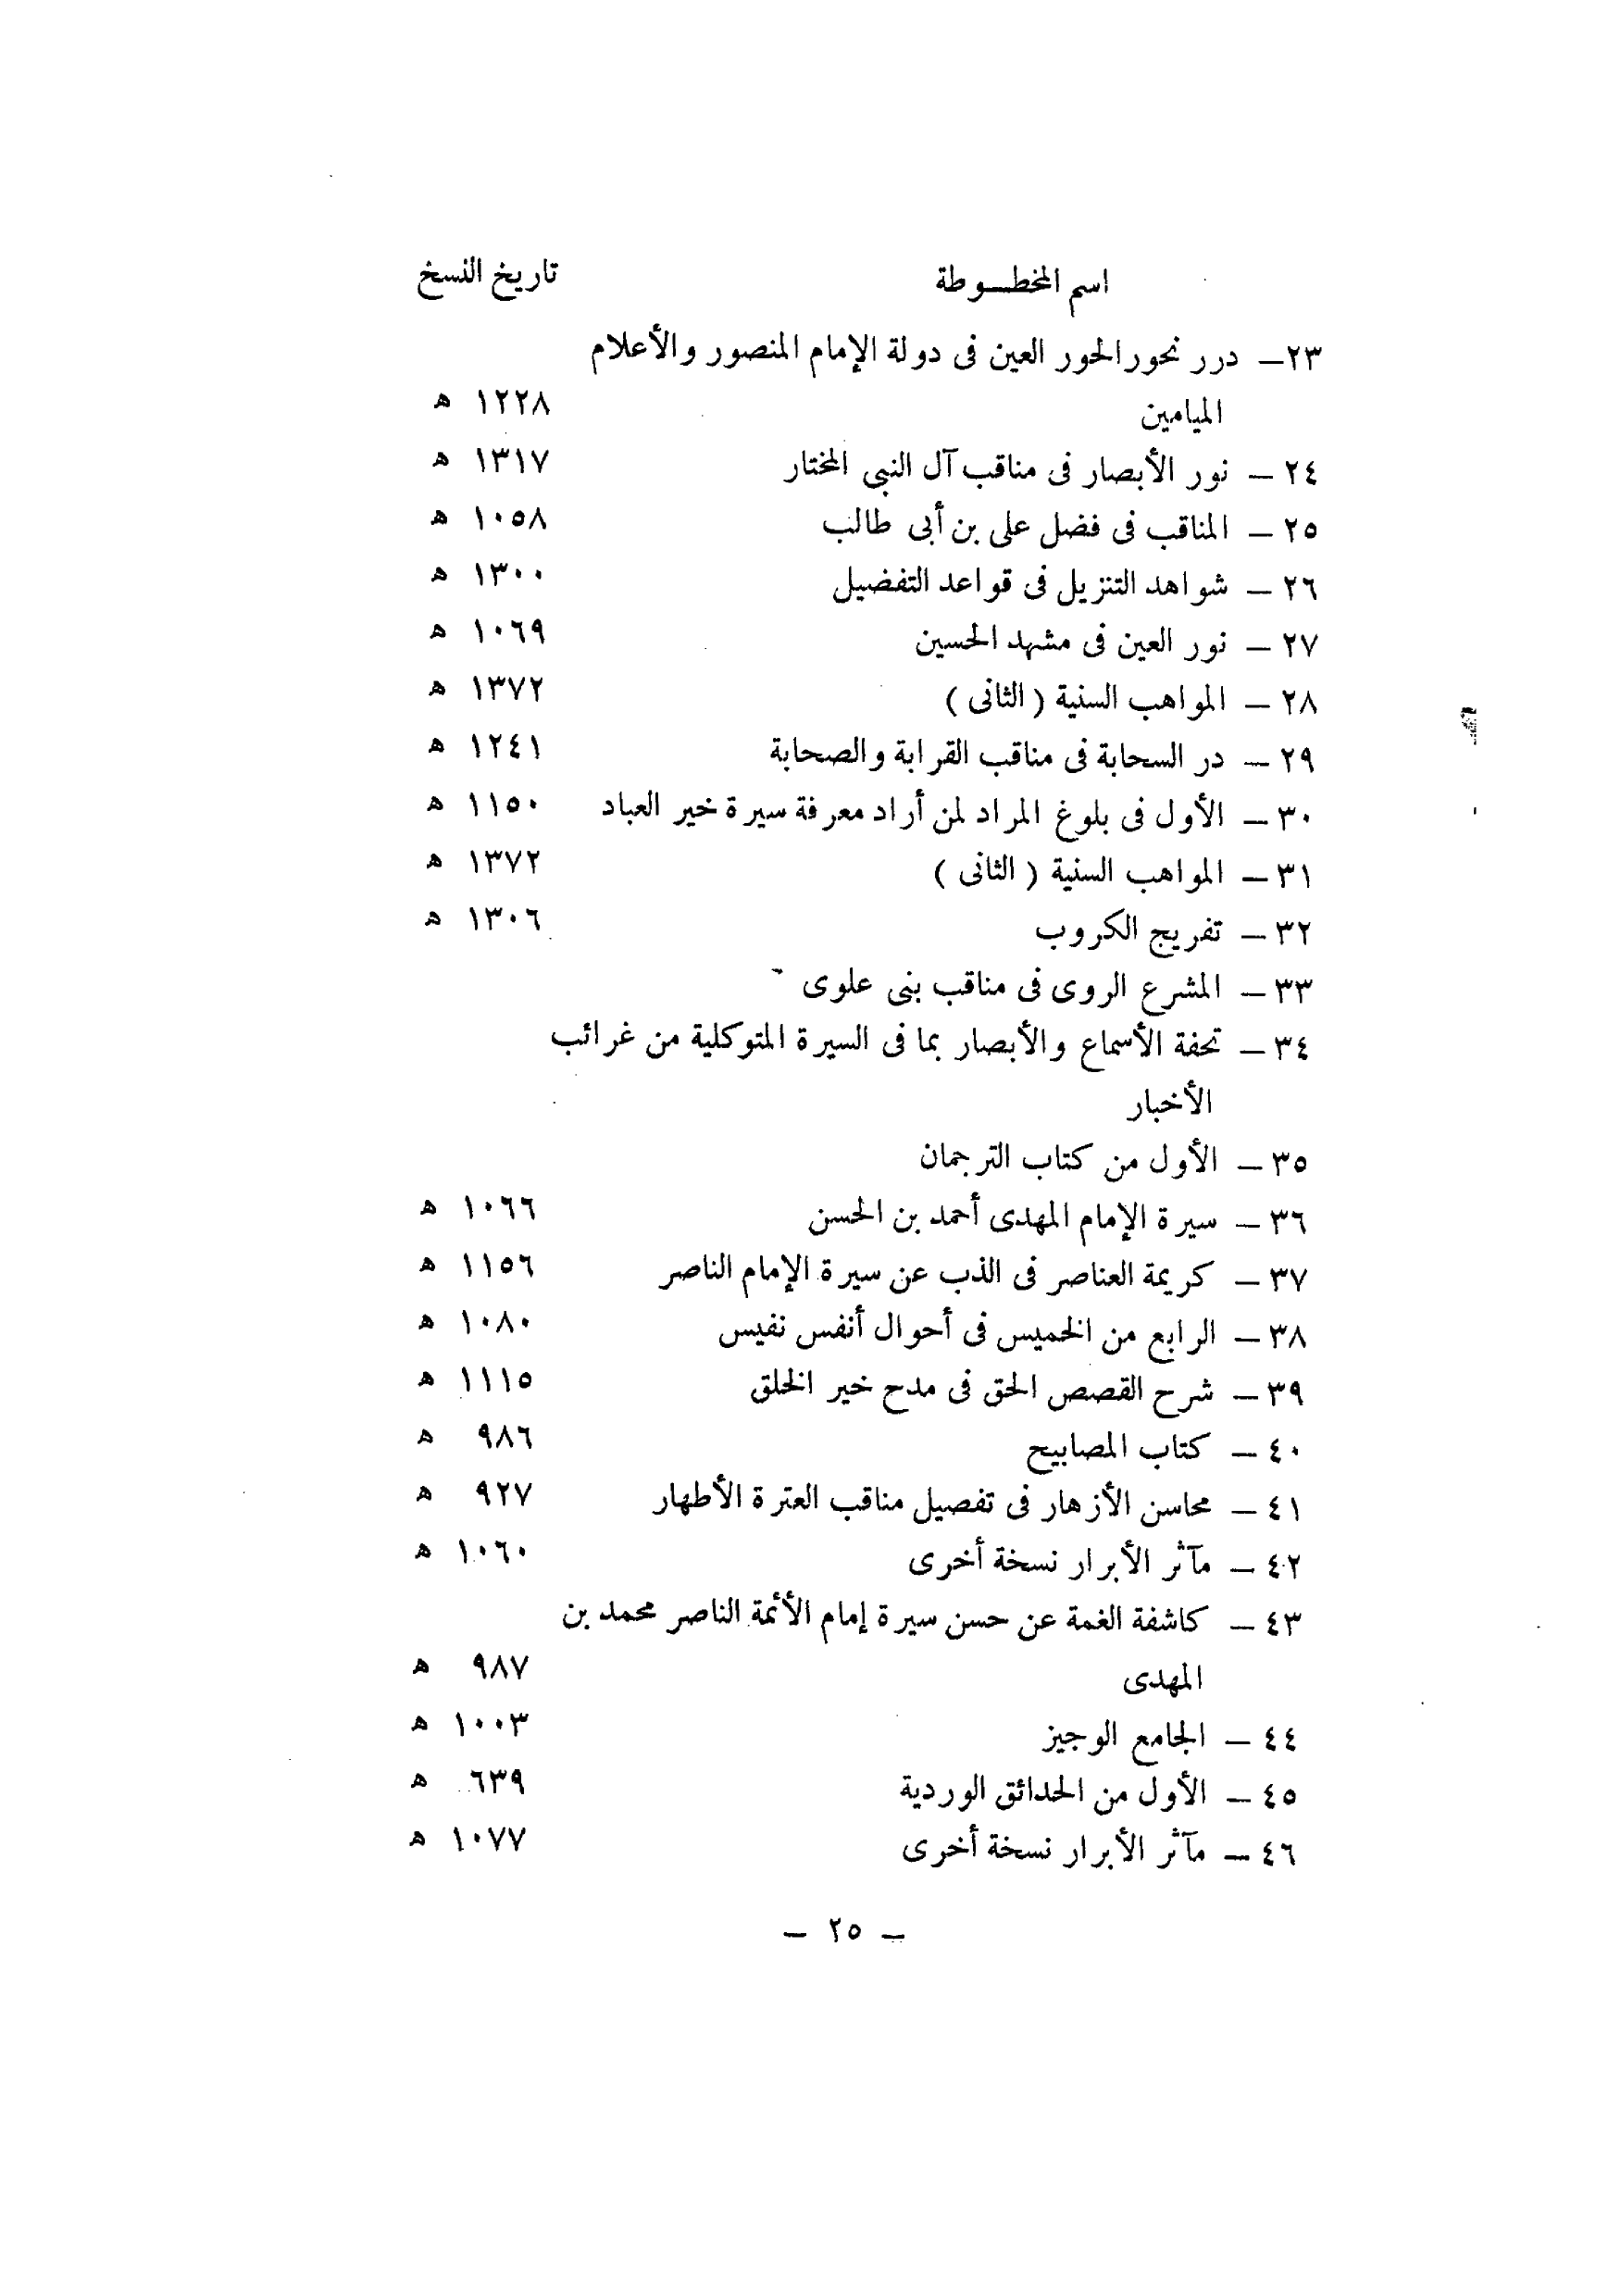 اسم المخطوطة تاريخ النسخ
٢٣– درر نحور الحور العين فى دولة الإمام المنصور والأعلام
الميامين ١٢٢٨ ه
٢٤ – نور الأبصار فى مناقب آل النبى المختار ١٣١٧ ه
٢٥ – المناقب فى فضل على بن أبى طالب ١٠٥٨ ه
٢٦ – شواهد التنزيل فى قواعد التفضيل ١٣٠٠ ه
٢٧ – نور العين فى مشهد الحسين ١٠٦٩ ه
٢٨ – المواهب السنية ( الثانى ) ١٣٧٢ ه
٢٩ – در السحابة فى مناقب القرابة والصحابة ١٢٤١ ه
٣٠ – الأول فى بلوغ المراد لمن أراد معرفة سيرة خير العباد ١١٥٠ ه
٣١ – المواهب السنية ( الثانى ) ١٣٧٢ ه
٣٢ – تفريج الكروب ١٣٠٦ ه
٣٣ – المشرع الروى فى مناقب بنى علوى
٣٤ – تحفة الأسماع والأبصار بما فى السيرة المتوكلية من غرائب
الأخبار
٣٥ – الأول من كتاب الترجمان
٣٦ – سيرة الإمام المهدى أحمد بن الحسن ١٠٦٦ ه
٣٧ – كريمة العناصر فى الذب عن سيرة الإمام الناصر ١١٥٦ ه
٣٨ – الرابع من الخميس فى أحوال أنفس نفيس ١٠٨٠ ه
٣٩ – شرح القصص الحق فى مدح خير الخلق ١١١٥ ه
٤٠ – كتاب المصابيح ٩٨٦ ه
٤١ – محاسن الأزهار فى تفصيل مناقب العترة الأطهار ٩٢٧ ه
٤٢ – مآثر الأبرار نسخة أخرى ١٠٦٠ ه
٤٣ – كاشفة الغمة عن حسن سيرة إمام الأئمة الناصر محمد بن
المهدى ٩٨٧ ه
٤٤ – الجامع الوجيز ١٠٠٣ ه
٤٥ – الأول من الحدائق الوردية ٦٣٩ ه
٤٦ – مآثر الأبرار نسخة أخرى ١٠٧٧ ه
– ٢٥ –